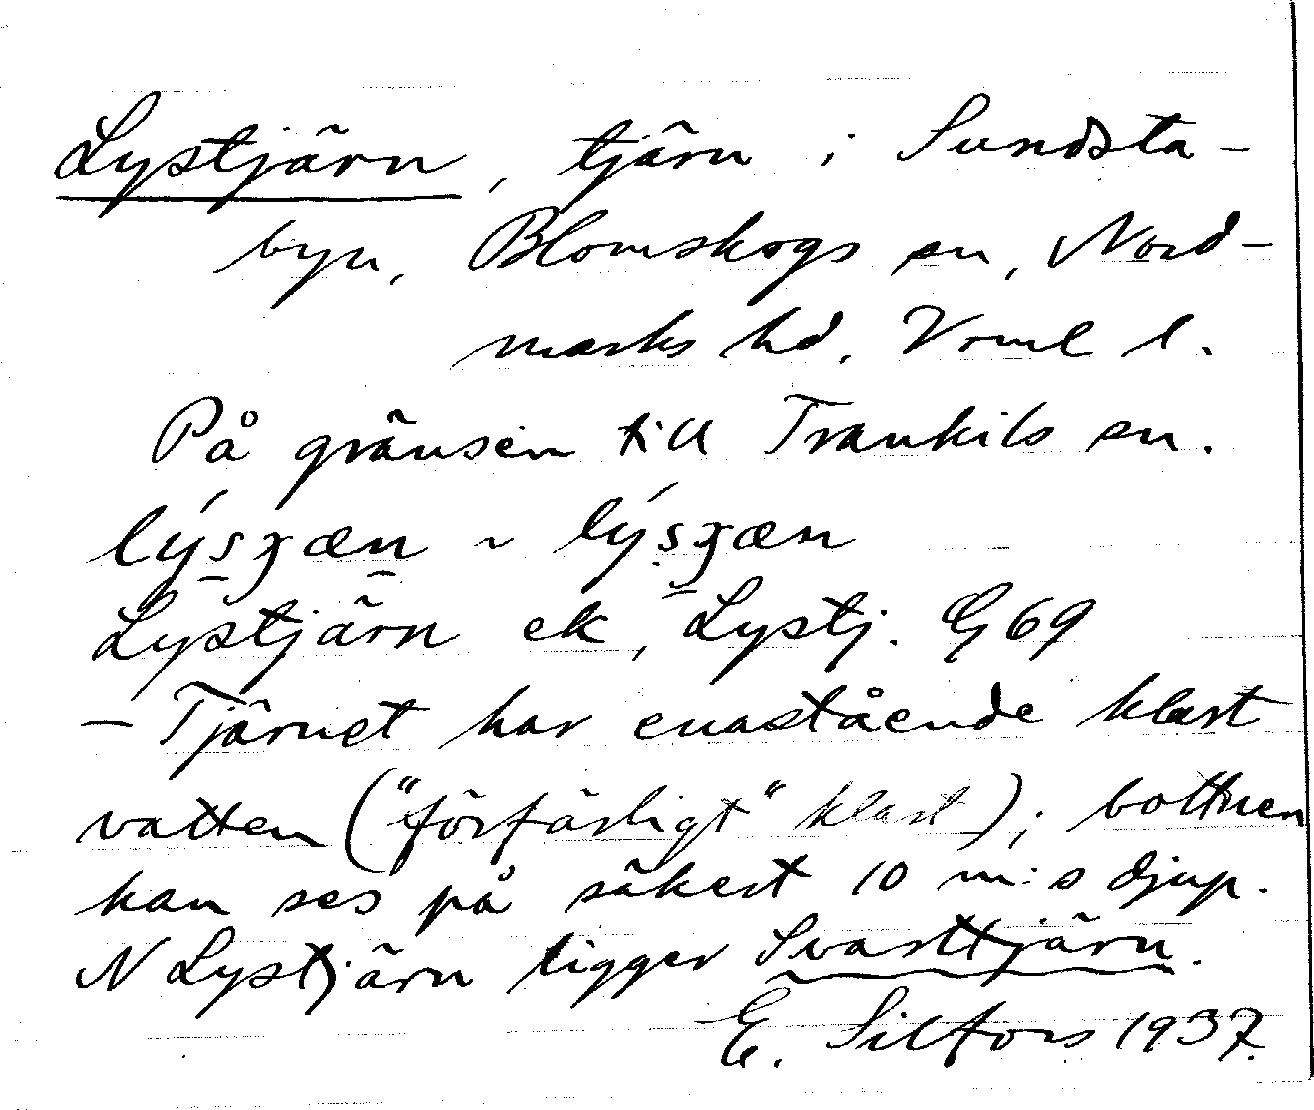 Lystjärn, tjärn i Sundsta-
byn, Blomskogs sn, Nord-
marks hd, Vrml l.
På gränsen till Trankils sn.
lýsʒæn ~ lýsʒæn
Lystjärn ek, Lystj. G69
– Tjärnet har enastående klart
vatten ("förfärligt" klart); bottnen
kan ses på säkert 10 m:s djup.
N Lystjärn ligger Svarttjärn.
E. Silfors 1937.